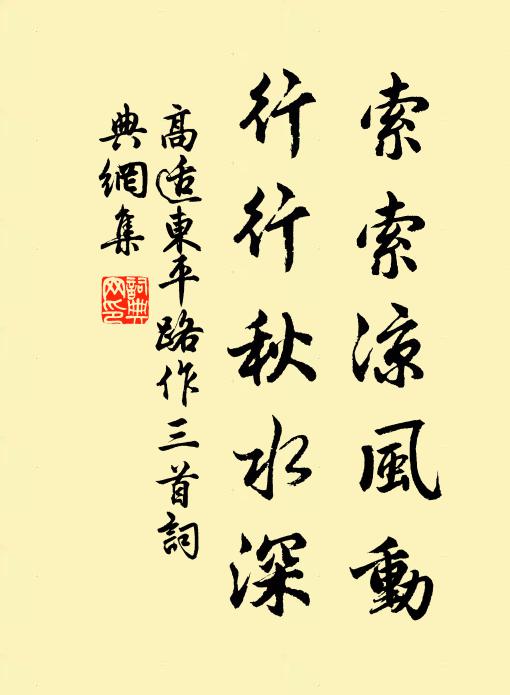 索索涼風動
行行秋水深
高适東平路作三首詞
典網集
詞典
网印